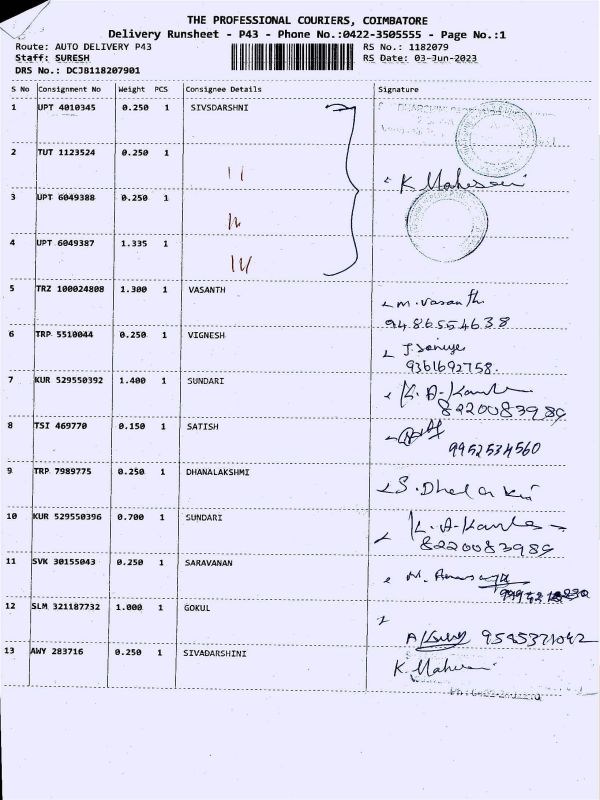 THE PROFESSIONAL COURIERS, COIMBATORE
Delivery Runsheet - P43 - Phone No.:0422-3505555 - Page No.:1
Route: AUTO DELIVERY P43 RS No.: 1182079
Staff: SURESH RS Date: 03-Jun-2023
DRS No.: DCJB118207901
S No Consignment No Weight PCS Consignee Details Signature
1 UPT 4010345 0.250 1 SIVSDARSHNI
2 TUT 1123524 0.250 1 11
K. Maheswari
3 UPT 6049388 0.250 1
4 UPT 6049387 1.335 1
5 TRZ 100024808 1.300 1 VASANTH M. Vasanth
9486554638
6 TRP 5510044 0.250 1 VIGNESH
9361692758.
7 KUR 529550392 1.400 1 SUNDARI K. A-
8220083989
8 TSI 469770 0.150 1 SATISH
9952534560
9 TRP 7989775 0.250 1 DHANALAKSHMI
10 KUR 529550396 0.700 1 SUNDARI K. A-
8220083989
11 SVK 30155043 0.250 1 SARAVANAN M.
12 SLM 321187732 1.000 1 GOKUL
13 AWY 283716 0.250 1 SIVADARSHINI